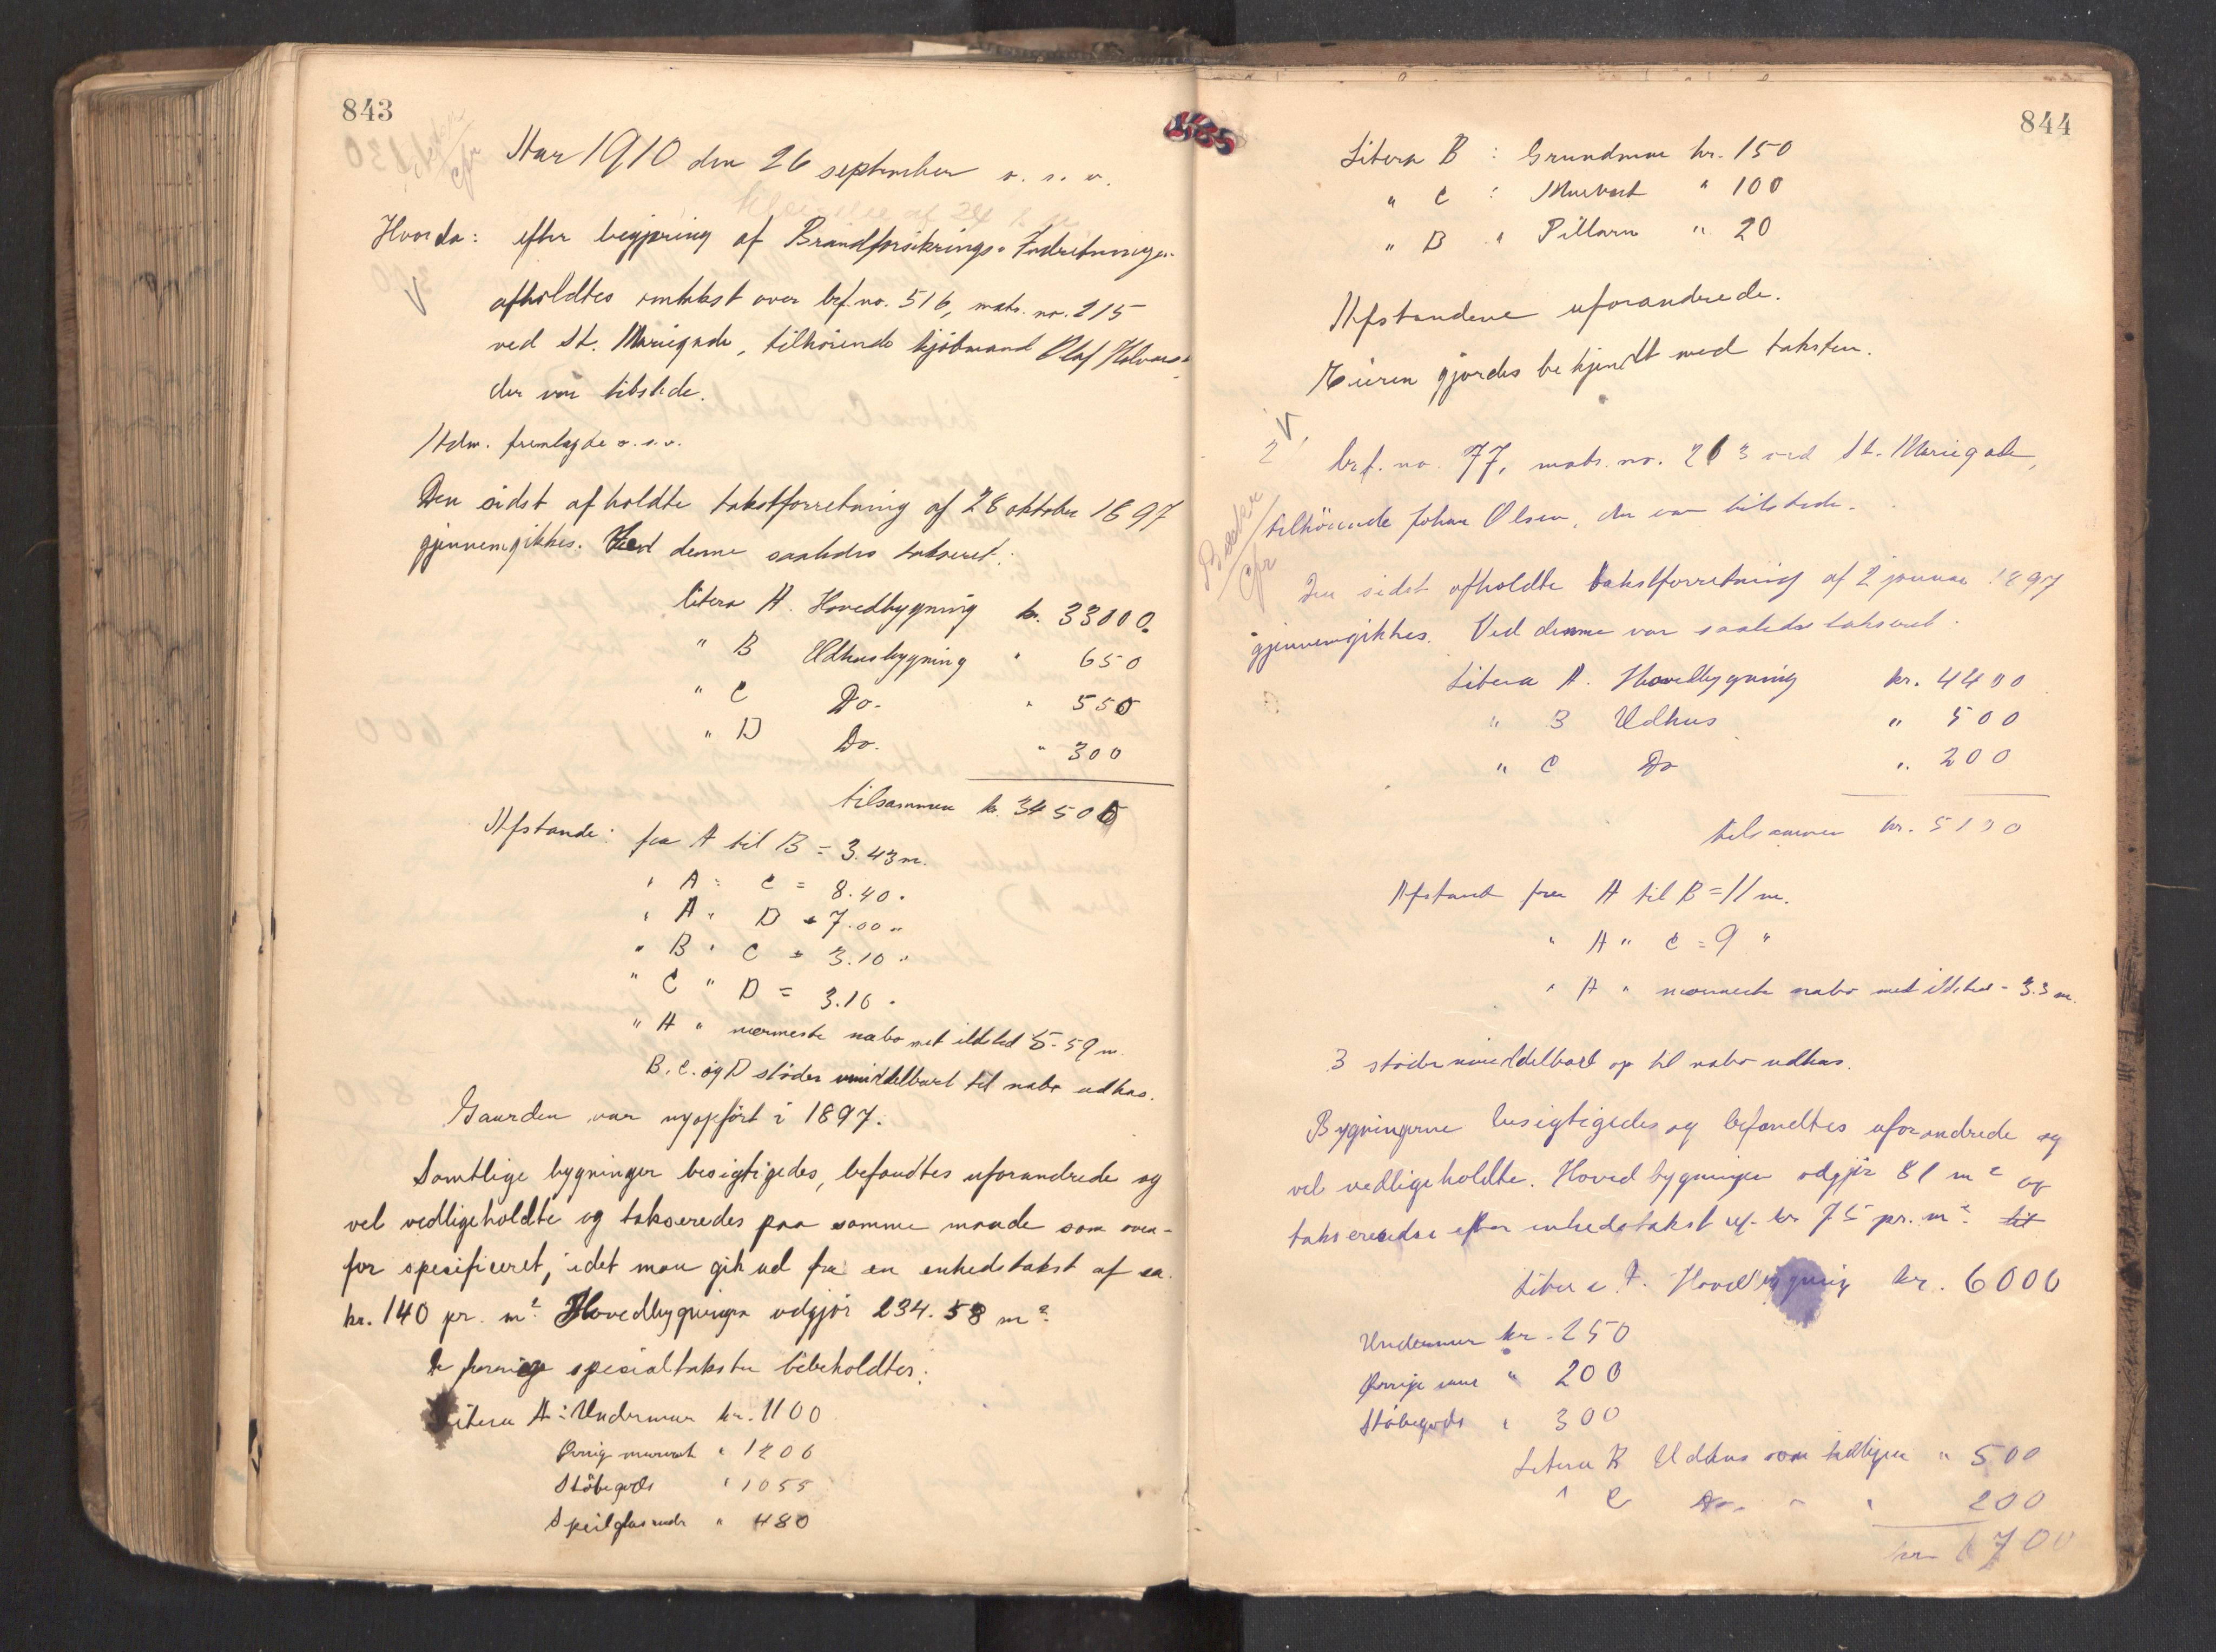 843
Aar 1910 den 26 september o. s. v.
Hvorda: efter begjæring af Brandforsikrings-Indretningen
afholdtes omtakst over brf. no. 516, matr. no. 215
ved St. Mariegade, tilhørende kjøbmand Olaf
der var tilstede.
Adm. fremlagde o. s. v.
Den sidst afholdte takstforretning af 28 oktober 1897
gjennemgikkes. Ved denne saaledes takseret:
litera A. Hovedbygning kr. 33000.
" B Udhusbygning " 650
" C Do. " 550
" D Do. " 300
tilsammen kr. 34500
Afstande: fra A til B = 3.43 m.
" A " C = 8.40 "
" A " D = 7.00 "
" B " C = 3.10 "
" C " D = 3.16 "
" A " nærmeste nabo met ildsted 5.59 m.
B, C. og D støder umiddelbart til nabo udhus.
Gaarden var nyopført i 1897.
Samtlige bygninger besigtigedes, befandtes uforandrede og
vel vedligeholdte og takseredes paa samme maade som oven-
for spesificeret, idet man gik ud fra en enhedstakst af ca.
kr. 140 pr. m² Hovedbygningen udgjør 234.58 m²
De forrige spesialtakster bibeholdtes:
Litera A: Undermur kr. 1100
Øvrig murverk " 1200
Støbegods " 1055
Speilglasruder " 480
844
Litera B : Grundmur kr. 150
" C : Murverk " 100
" D " Pillarer " 20
Afstandene uforandrede.
Eieren gjordes bekjendt med taksten.
2, brf. no. 77, matr. no. 213 ved St. Mariegade,
tilhørende Johan Olsen, der var tilstede.
Den sidst afholdte takstforretning af 2 januar 1897
gjennemgikkes. Ved denne var saaledes takseret:
Litera A. Hovedbygning kr. 4400
" B Udhus " 500
" C Do " 200
tilsammen kr. 5100
Afstand fra A til B = 11 m.
" A " C = 9 "
" A " nærmeste nabo met ildsted = 3.3 m.
B støder umiddelbart op til nabo udhus.
Bygningerne besigtigedes og befandtes uforandrede og
vel vedligeholdte. Hovedbygningen udgjør 81 m² og
takseredes efter enhedstakst af kr 75 pr. m². til
Litera A. Hovedbygning kr. 6000
Undermur kr. 250
Øvrige mur " 200
Støbegods " 300
Litera B Udhus som tidligere " 500
" C Do. " " 200
kr. 6700